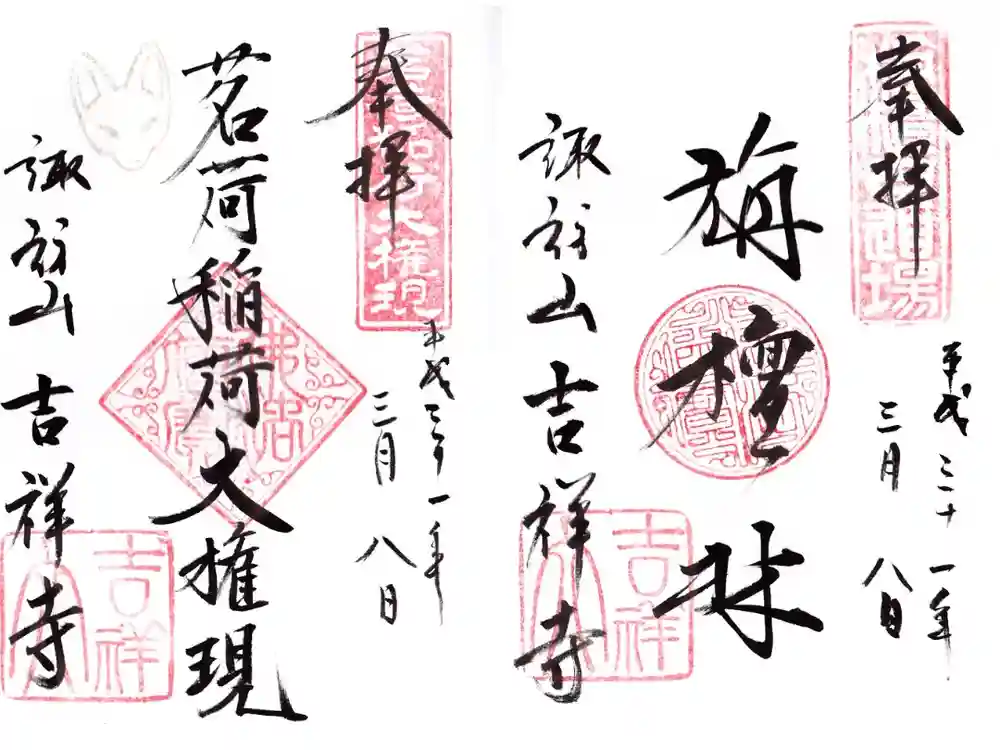 奉拝
平成三十一年
三月八日
旃檀林
諏訪山 吉祥寺
吉祥寺
奉拝
大権現
平成三十一年
三月八日
茗荷稲荷大権現
諏訪山 吉祥寺
吉祥寺